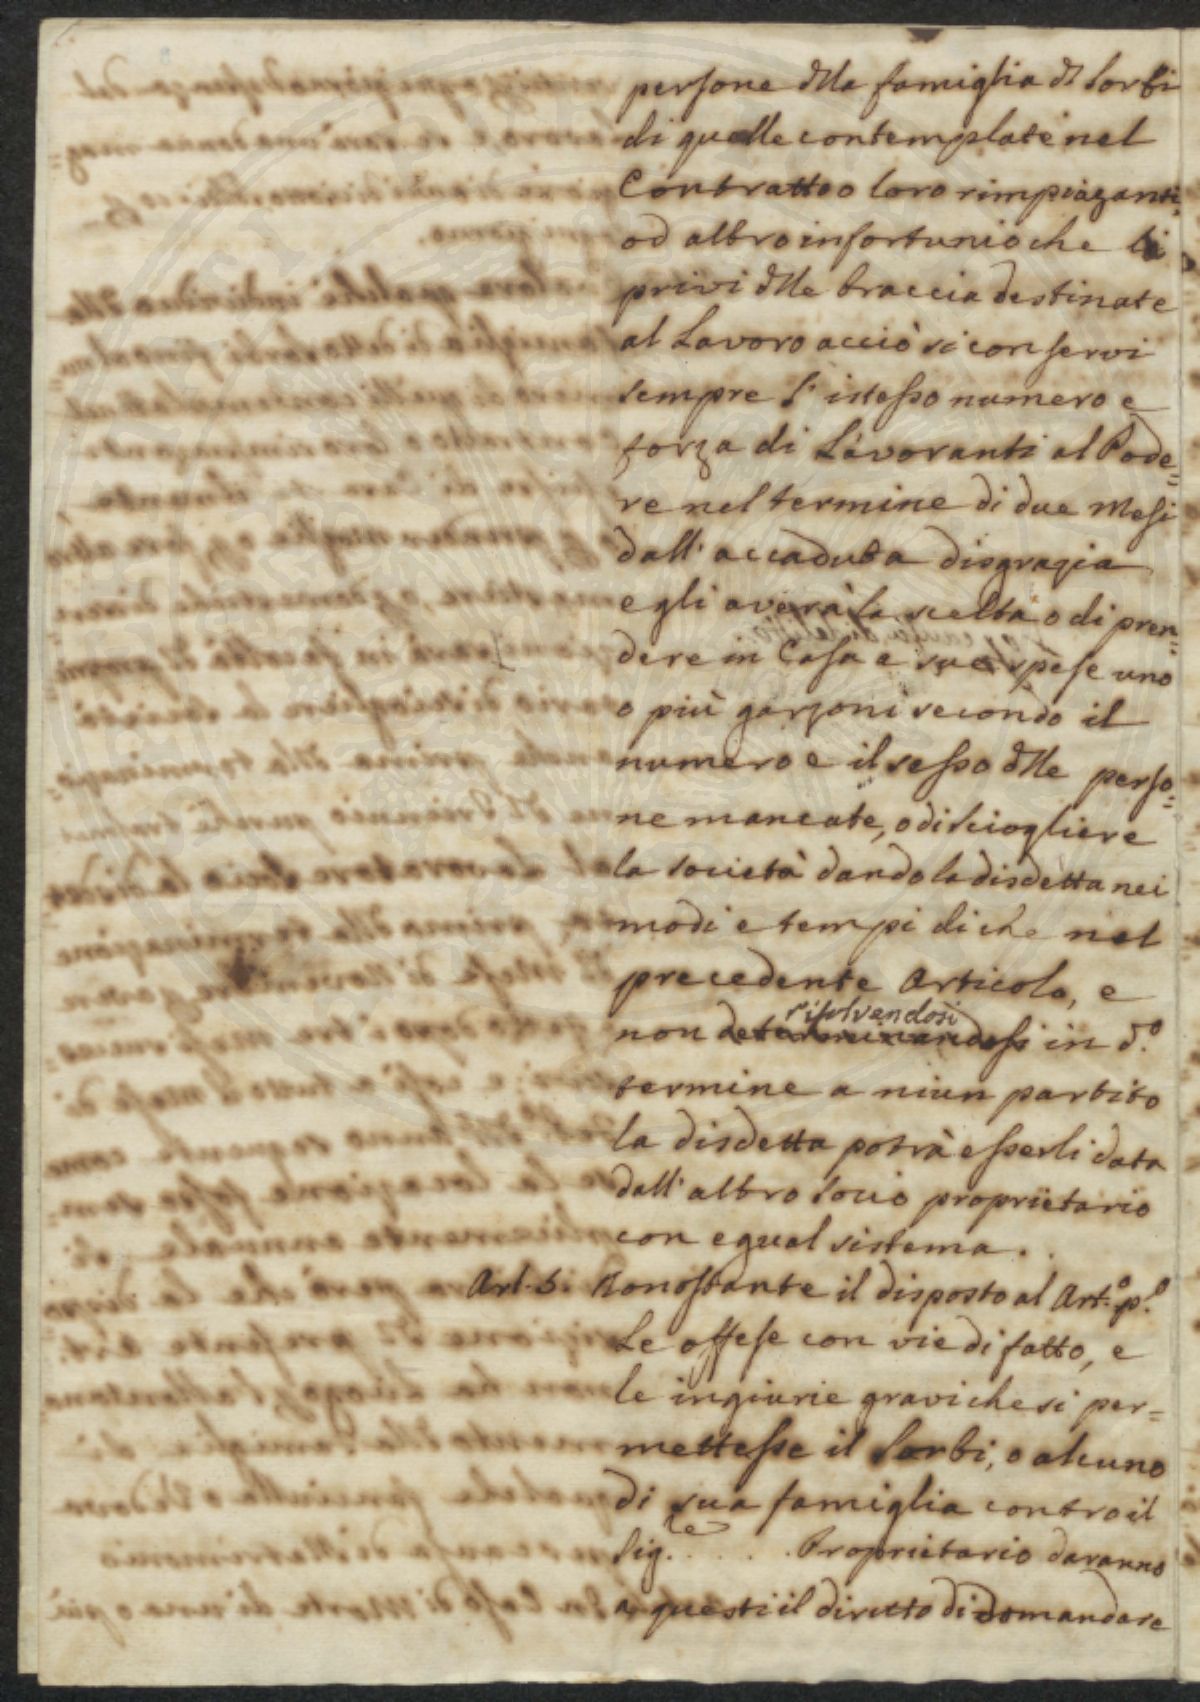 persone dlla famiglia dl Sorbi
di quelle contemplate nel
Contratto o loro rimpiazanti,
od altro infortunio che li
privi dlle braccia destinate
al Lavoro acciò si conservi
sempre l'istesso numero e
forza di Lavoranti al Pode=
re nel termine di due Mesi
dall'accaduta disgrazia
egli averà la scelta o di pren=
dere in Casa e sue spese uno
o più garzoni secondo il
numero e il sesso dlle perso=
ne mancate, o di sciogliere
la società dando la disdetta nei
modi e tempi di che nel
precedente Articolo, e
risolvendosi
non determinandosi in d.º
termine a niun partito
la disdetta potrà esserli data
dall'altro Socio proprietario
con egual sistema.
Art. 5. Nonostante il disposto al Art.º p.º
Le offese con vie di fatto, e
le ingiurie gravi che si per=
mettesse il Sorbi, o alcuno
di sua famiglia contro il
Sig.re . . . . Proprietario daranno
a questi il diritto di domandare